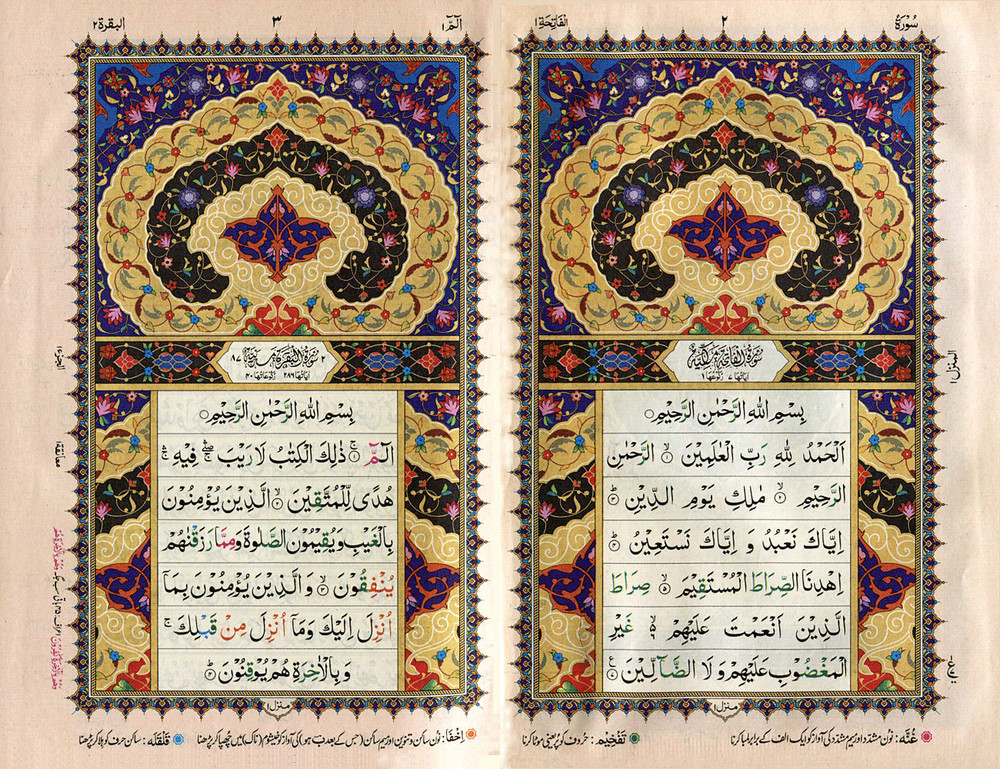 سُوْرَةُ
٢
اَلْفَاتِحَة ١
سُوْرَةُ الْفَاتِحَةِ مَكِّيَّةٌ
اٰيَاتُهَا ٧ رُكُوْعُهَا ١
بِسْمِ اللّٰهِ الرَّحْمٰنِ الرَّحِيْمِ ○
اَلْحَمْدُ لِلّٰهِ رَبِّ الْعٰلَمِيْنَ ۙ﴿١﴾ الرَّحْمٰنِ
الرَّحِيْمِ ۙ﴿٢﴾ مٰلِكِ يَوْمِ الدِّيْنِ ؕ﴿٣﴾
اِيَّاكَ نَعْبُدُ وَ اِيَّاكَ نَسْتَعِيْنُ ؕ﴿٤﴾
اِهْدِنَا الصِّرَاطَ الْمُسْتَقِيْمَ ۙ﴿٥﴾ صِرَاطَ
الَّذِيْنَ اَنْعَمْتَ عَلَيْهِمْ ۙ۬﴿٦﴾ غَيْرِ
الْمَغْضُوْبِ عَلَيْهِمْ وَ لَا الضَّآلِّيْنَ ﴿٧﴾
منزل ١
المنزل ١
غُنَّه: نون مشدّد اور میم مشدّد کی آواز کو ایک الف کے برابر لمبا کرنا
تَفْخِیْم: حروف کو پُر یعنی موٹا کرنا
الٓمّٓ ١
٣
البقرة ٢
٢ سُوْرَةُ الْبَقَرَةِ مَدَنِيَّةٌ ٨٧
اٰيَاتُهَا ٢٨٦ رُكُوْعَاتُهَا ٤٠
بِسْمِ اللّٰهِ الرَّحْمٰنِ الرَّحِيْمِ ○
الٓمّٓ ۚ﴿١﴾ ذٰلِكَ الْكِتٰبُ لَا رَيْبَ ۛۖۚ فِيْهِ ۛۚ
هُدًى لِّلْمُتَّقِيْنَ ۙ﴿٢﴾ الَّذِيْنَ يُؤْمِنُوْنَ
بِالْغَيْبِ وَ يُقِيْمُوْنَ الصَّلٰوةَ وَ مِمَّا رَزَقْنٰهُمْ
يُنْفِقُوْنَ ۙ﴿٣﴾ وَ الَّذِيْنَ يُؤْمِنُوْنَ بِمَاۤ
اُنْزِلَ اِلَيْكَ وَ مَاۤ اُنْزِلَ مِنْ قَبْلِكَ ۚ
وَ بِالْاٰخِرَةِ هُمْ يُوْقِنُوْنَ ؕ﴿٤﴾
منزل ١
الجزء ١
معانقة ١
اِخْفَا: نون ساکن و تنوین اور میم ساکن (جس کے بعد ب ہو) کی آواز کو خیشوم (ناک) میں چھپا کر پڑھنا
قَلْقَلَه: ساکن حرف کو ہلا کر پڑھنا